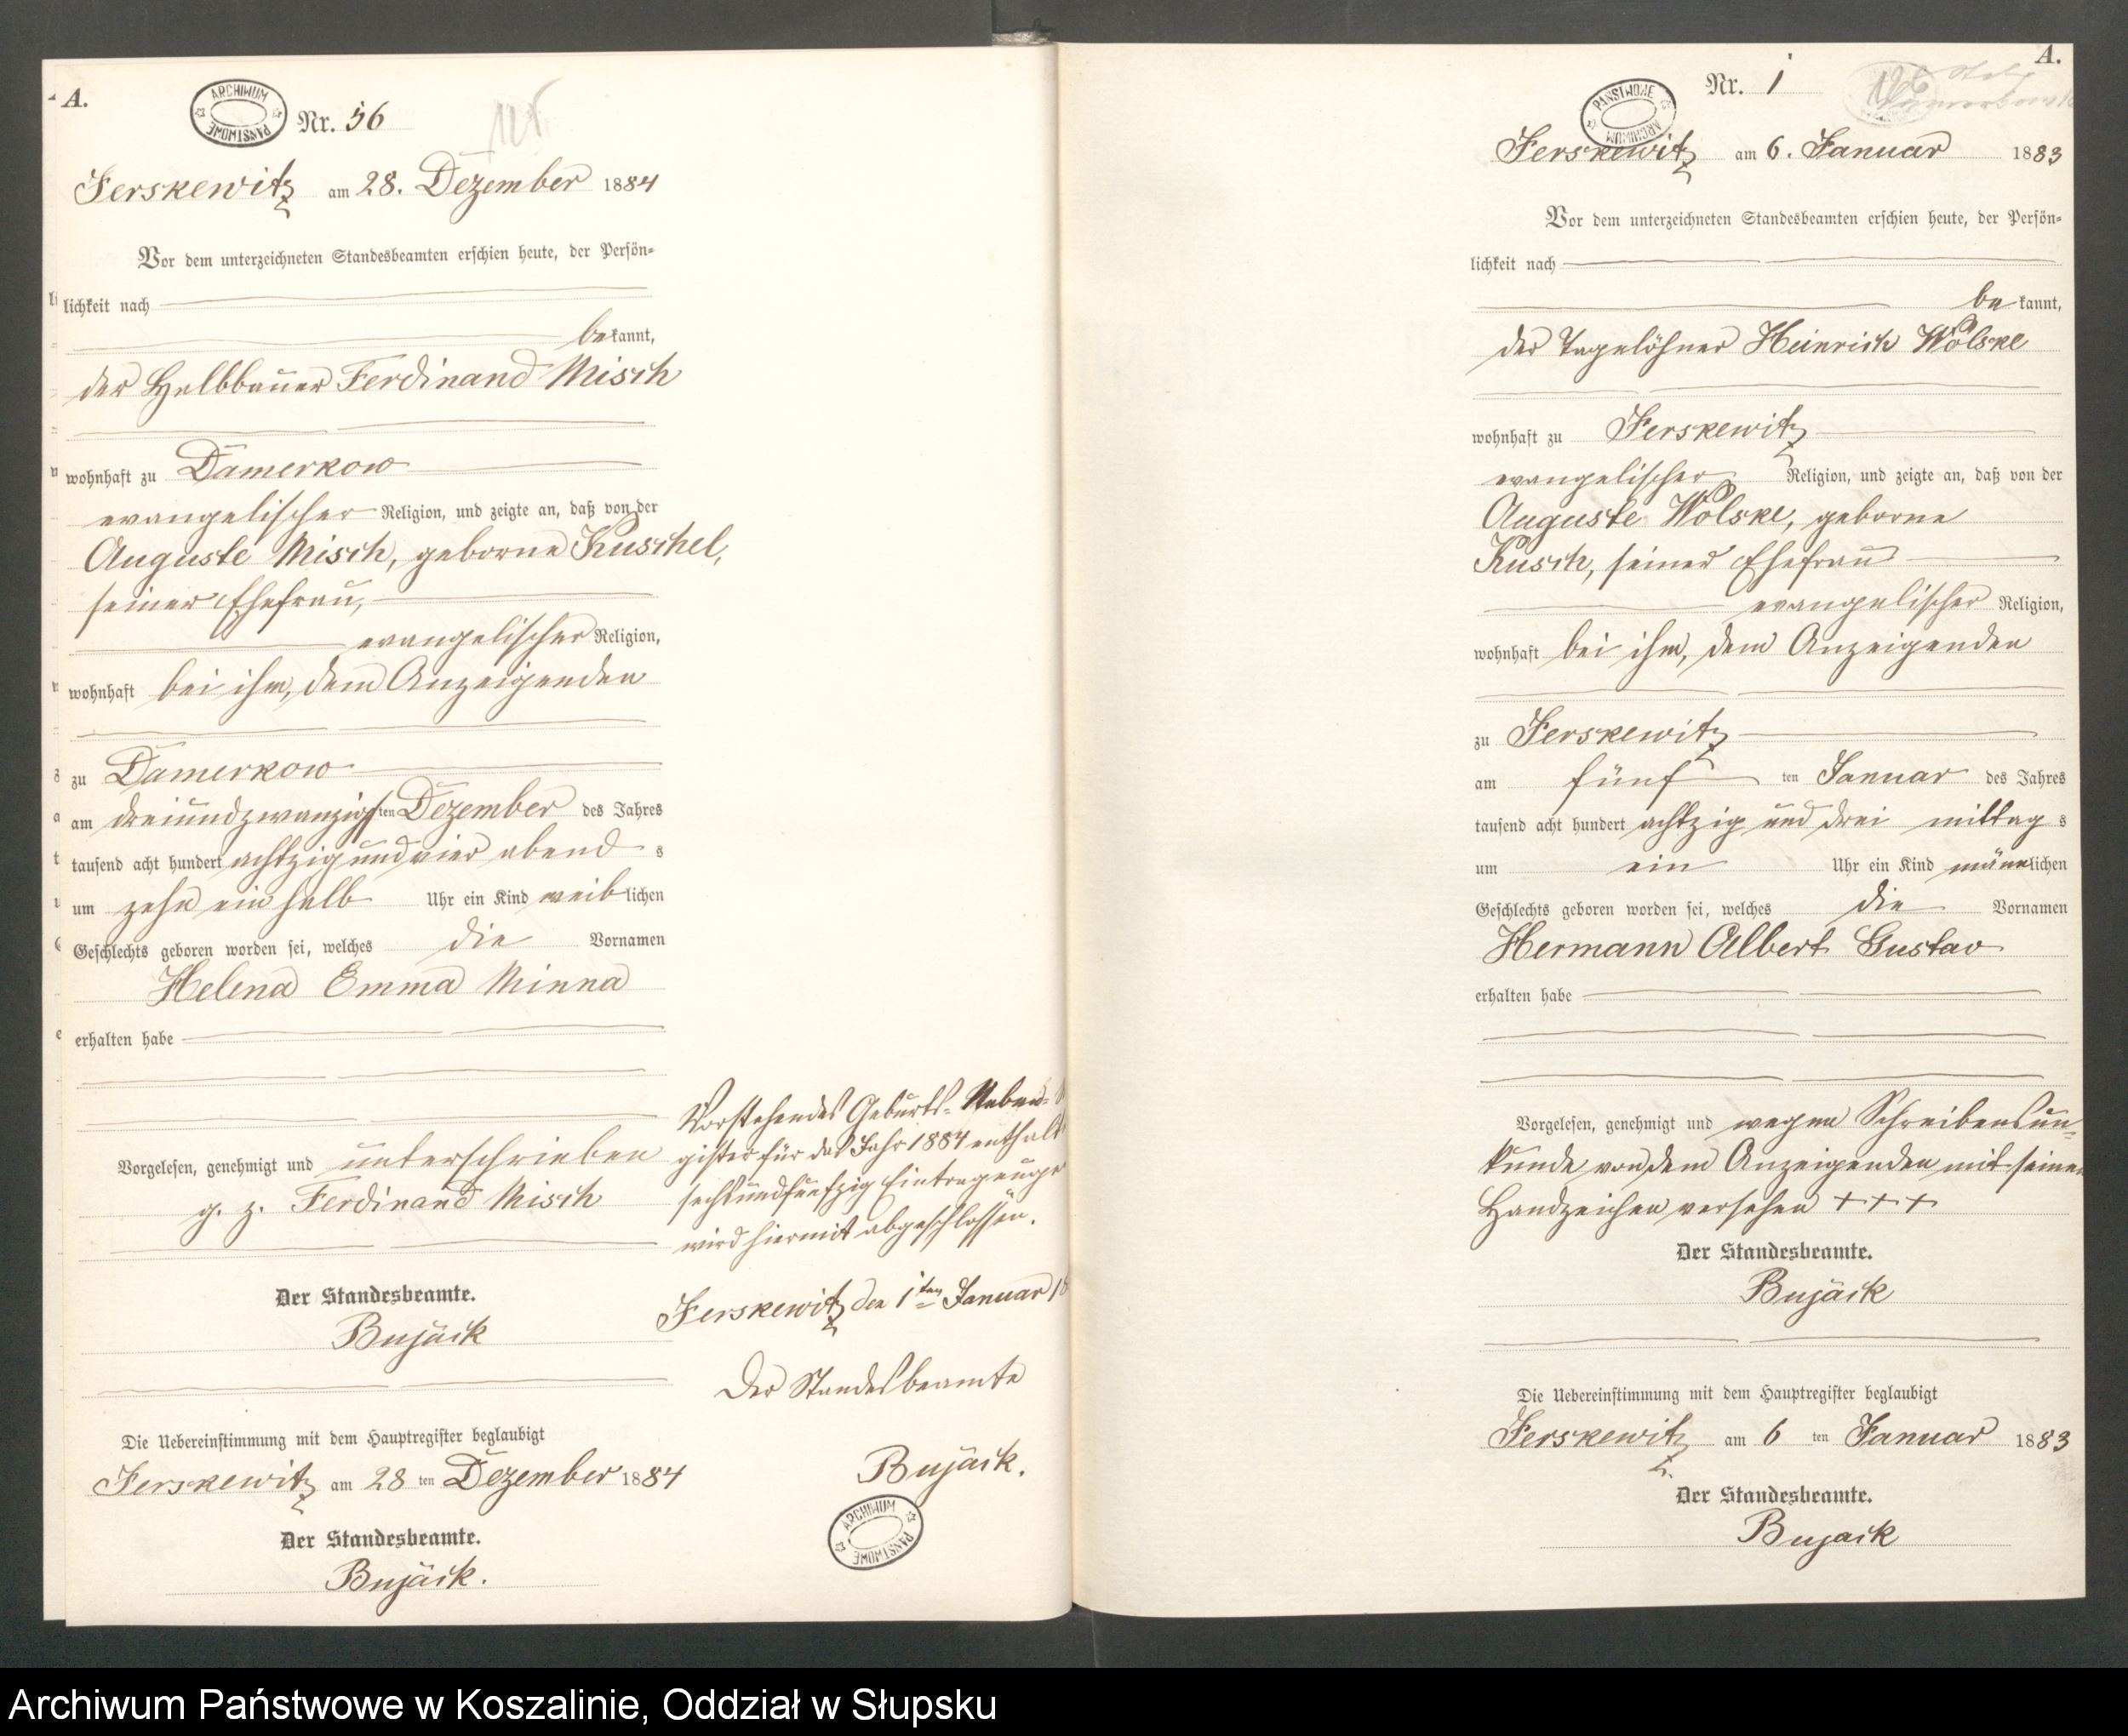 A.
ARCHIWUM PAŃSTWOWE
Nr. 56
Ferskewitz am 28. Dezember 1884
Vor dem unterzeichneten Standesbeamten erschien heute, der Persön-
lichkeit nach
bekannt,
der Halbbauer Ferdinand Misch
wohnhaft zu Damerkow
evangelischer Religion, und zeigte an, daß von der
Auguste Misch, geborne Kuschel,
seiner Ehefrau,
evangelischer Religion,
wohnhaft bei ihm, dem Anzeigenden
zu Damerkow
am dreiundzwanzigsten Dezember des Jahres
tausend acht hundert achtzig und vier abends
um zehn ein halb Uhr ein Kind weiblichen
Geschlechts geboren worden sei, welches die Vornamen
Helena Emma Minna
erhalten habe
Vorgelesen, genehmigt und unterschrieben
g. z. Ferdinand Misch
Der Standesbeamte.
Bujäck
Die Uebereinstimmung mit dem Hauptregister beglaubigt
Ferskewitz am 28 ten Dezember 1884
Der Standesbeamte.
Bujäck.
Vorstehendes Geburts-Neben-
gister für das Jahr 1884 enthält
sechsundfünfzig Eintragunge
wird hiermit abgeschlossen.
Ferskewitz den 1ten Januar 18
Der Standesbeamte
Bujäck.
ARCHIWUM PAŃSTWOWE
A.
PAŃSTWOWE ARCHIWUM
Nr. 1
Ferskewitz am 6. Januar 1883
Vor dem unterzeichneten Standesbeamten erschien heute, der Persön-
lichkeit nach
bekannt,
der Tagelöhner Heinrich Wölske
wohnhaft zu Ferskewitz
evangelischer Religion, und zeigte an, daß von der
Auguste Wölske, geborne
Kusch, seiner Ehefrau
evangelischer Religion,
wohnhaft bei ihm, dem Anzeigenden
zu Ferskewitz
am fünf ten Januar des Jahres
tausend acht hundert achtzig und drei mittags
um ein Uhr ein Kind männlichen
Geschlechts geboren worden sei, welches die Vornamen
Hermann Albert Gustav
erhalten habe
Vorgelesen, genehmigt und wegen Schreibensun-
kunde von dem Anzeigenden mit seinem
Handzeichen versehen + + +
Der Standesbeamte.
Bujäck
Die Uebereinstimmung mit dem Hauptregister beglaubigt
Ferskewitz am 6 ten Januar 1883
Der Standesbeamte.
Bujack
Archiwum Państwowe w Koszalinie, Oddział w Słupsku